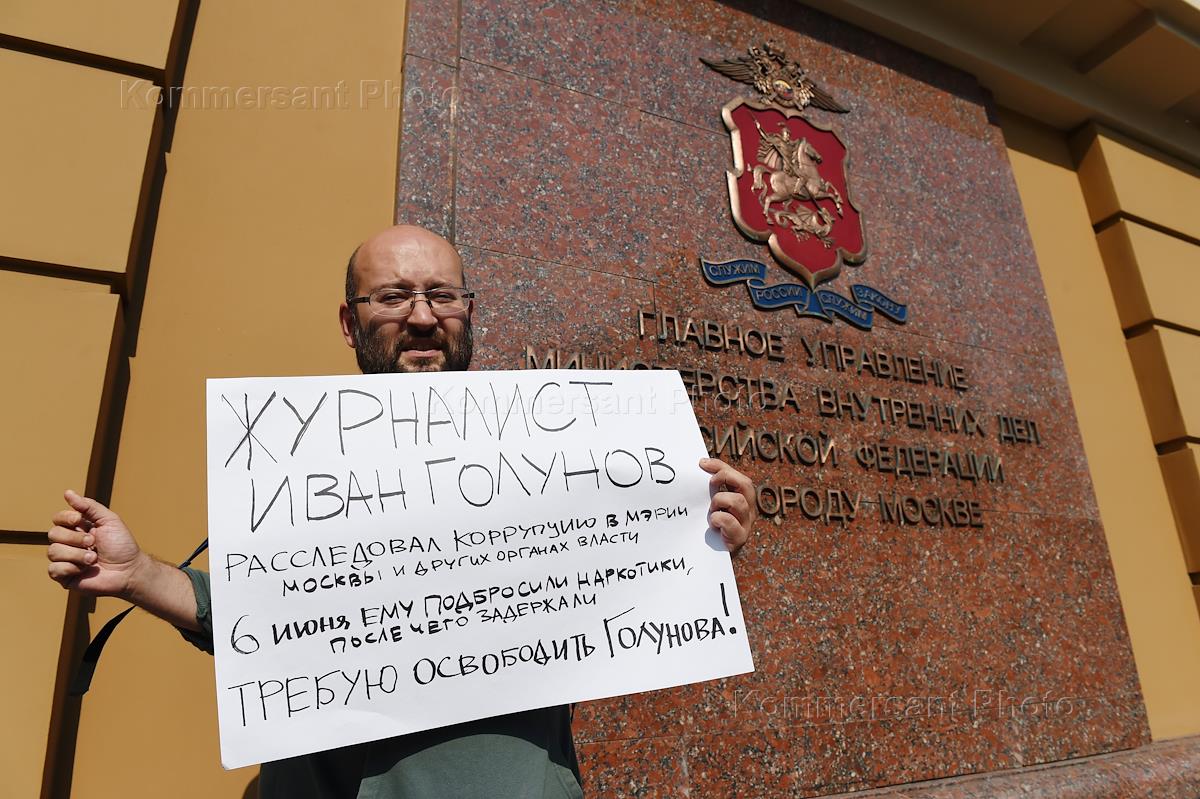 Kommersant Photo
СЛУЖИМ РОССИИ СЛУЖИМ ЗАКОНУ
ГЛАВНОЕ УПРАВЛЕНИЕ
МИНИСТЕРСТВА ВНУТРЕННИХ ДЕЛ
СИЙСКОЙ ФЕДЕРАЦИИ
ОРОДУ МОСКВЕ
ЖУРНАЛИСТ
ИВАН ГОЛУНОВ
РАССЛЕДОВАЛ КОРРУПЦИЮ В МЭРИИ
МОСКВЫ И ДРУГИХ ОРГАНАХ ВЛАСТИ
6 ИЮНЯ ЕМУ ПОДБРОСИЛИ НАРКОТИКИ,
ПОСЛЕ ЧЕГО ЗАДЕРЖАЛИ
ТРЕБУЮ ОСВОБОДИТЬ ГОЛУНОВА!
Kommersant Photo
Kommersant Photo